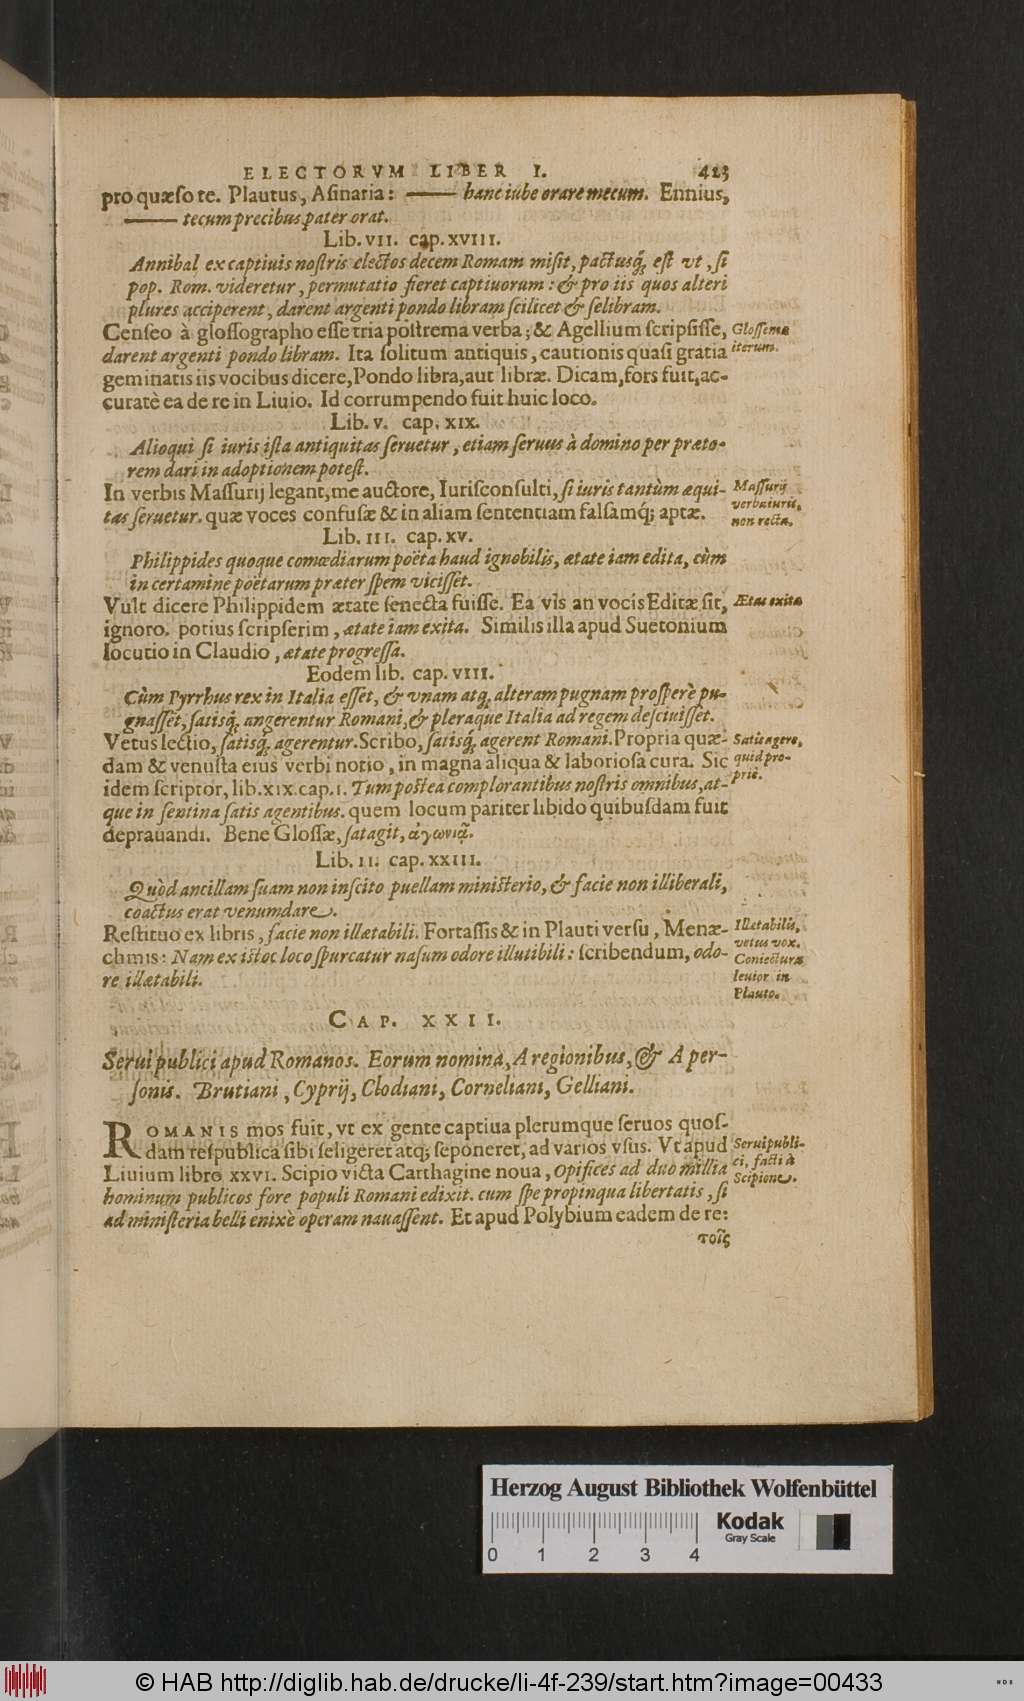 ELECTORVM LIBER I. 423
pro quæso te. Plautus, Asinaria: —— hanc iube orare mecum. Ennius,
—— tecum precibus pater orat.
Lib. VII. cap. XVIII.
Annibal ex captiuis nostris electos decem Romam misit, pactusq́; est vt, si
pop. Rom. videretur, permutatio fieret captiuorum: & pro iis quos alteri
plures acciperent, darent argenti pondo libram scilicet & selibram.
Censeo à glossographo esse tria postrema verba; & Agellium scripsisse, Glossema
darent argenti pondo libram. Ita solitum antiquis, cautionis quasi gratia iterum.
geminatis iis vocibus dicere, Pondo libra, aut libræ. Dicam, fors fuit, ac-
curatè ea de re in Liuio. Id corrumpendo fuit huic loco.
Lib. V. cap. XIX.
Alioqui si iuris ista antiquitas seruetur, etiam seruus à domino per præto-
rem dari in adoptionem potest.
In verbis Massurij legant, me auctore, Iurisconsulti, si iuris tantùm æqui- Massurij
tas seruetur. quæ voces confusæ & in aliam sententiam falsamq́; aptæ. verba iuris, non recta.
Lib. III. cap. XV.
Philippides quoque comœdiarum poëta haud ignobilis, ætate iam edita, cùm
in certamine poëtarum præter spem vicisset.
Vult dicere Philippidem ætate senecta fuisse. Ea vis an vocis Editæ sit, Ætas exita
ignoro. potius scripserim, ætate iam exita. Similis illa apud Suetonium
locutio in Claudio, ætate progressa.
Eodem lib. cap. VIII.
Cùm Pyrrhus rex in Italia esset, & vnam atq; alteram pugnam prosperè pu-
gnasset, satisq́; angerentur Romani, & pleraque Italia ad regem desciuisset.
Vetus lectio, satisq́; agerentur. Scribo, satisq́; agerent Romani. Propria quæ- Satis agere,
dam & venusta eius verbi notio, in magna aliqua & laboriosa cura. Sic quid pro-
idem scriptor, lib. XIX. cap. I. Tum postea complorantibus nostris omnibus, at- prié.
que in sentina satis agentibus. quem locum pariter libido quibusdam fuit
deprauandi. Bene Glossæ, satagit, ἀγωνιᾷ.
Lib. II. cap. XXIII.
Quòd ancillam suam non inscito puellam ministerio, & facie non illiberali,
coactus erat venumdare.
Restituo ex libris, facie non illætabili. Fortassis & in Plauti versu, Menæ- Illætabilis,
chmis: Nam ex istoc loco spurcatur nasum odore illutibili: scribendum, odo- vetus vox. Coniectura
re illætabili. leuior in
Plauto.
CAP. XXII.
Serui publici apud Romanos. Eorum nomina, A regionibus, & A per-
sonis. Brutiani, Cyprij, Clodiani, Corneliani, Gelliani.
ROMANIS mos fuit, vt ex gente captiua plerumque seruos quos-
dam respublica sibi seligeret atq; seponeret, ad varios vsus. Vt apud Serui publi-
Liuium libro XXVI. Scipio victa Carthagine noua, Opifices ad duo millia ci, facti à
hominum publicos fore populi Romani edixit. cum spe propinqua libertatis, si Scipione.
ad ministeria belli enixè operam nauassent. Et apud Polybium eadem de re:
τοῖς
Herzog August Bibliothek Wolfenbüttel
0 1 2 3 4
Kodak
Gray Scale
© HAB http://diglib.hab.de/drucke/li-4f-239/start.htm?image=00433